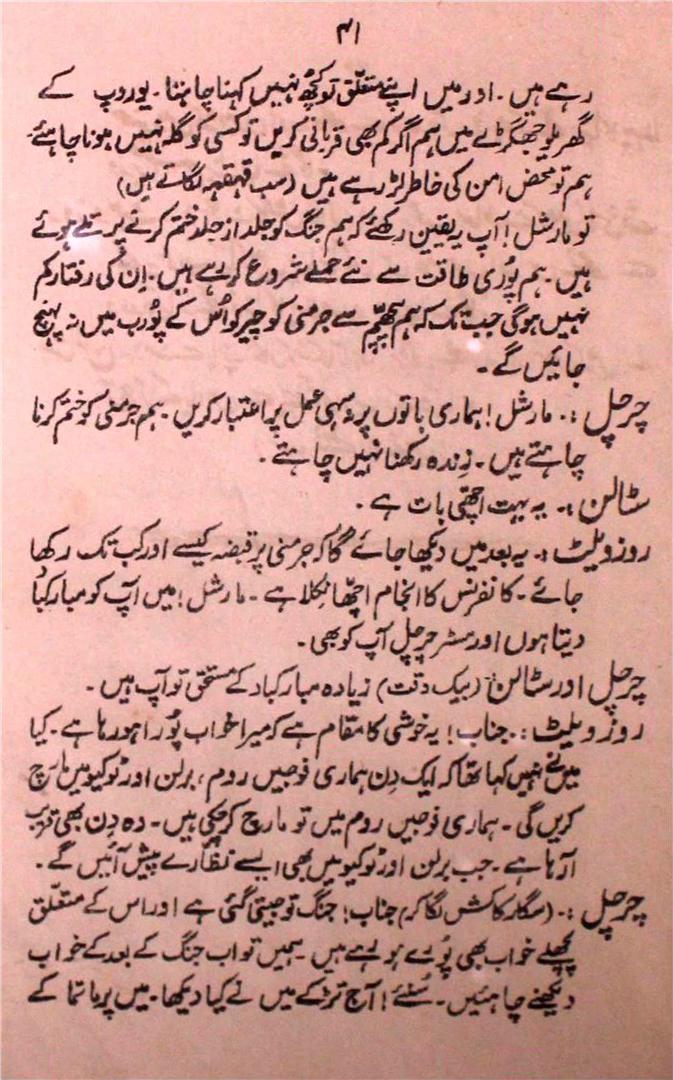 ۴۱
رہے ہیں ۔ اور میں اپنے متعلّق تو کچھ نہیں کہنا چاہتا ۔ یوروپ کے
گھریلو جھگڑے میں ہم اگر کم بھی قربانی کریں تو کسی کو گلہ نہیں ہونا چاہئے ۔
ہم تو محض امن کی خاطر لڑ رہے ہیں (سب قہقہہ لگاتے ہیں)
تو مارشل ! آپ یہ یقین رکھئے کہ ہم جنگ کو جلد از جلد ختم کرنے پر تلے ہوئے
ہیں ۔ ہم پُوری طاقت سے نئے حملے شروع کر رہے ہیں ۔ اِن کی رفتار کم
نہیں ہوگی جب تک کہ ہم پچھّم سے جرمنی کو چیر کو اُس کے پُورب میں نہ پہنچ
جائیں گے ۔
چرچل :۔ مارشل ! ہماری باتوں پر نہ سہی عمل پر اعتبار کریں ۔ ہم جرمنی کو ختم کرنا
چاہتے ہیں ۔ زندہ رکھنا نہیں چاہتے ۔
سٹالن :۔ یہ بہت اچھّی بات ہے ۔
روزویلٹ :۔ یہ بعد میں دیکھا جائے گا کہ جرمنی پر قبضہ کیسے اور کب تک رکھا
جائے ۔ کانفرنس کا انجام اچھّا نکلا ہے ۔ مارشل ! میں آپ کو مبارکباد
دیتا ہوں اور مسٹر چرچل آپ کو بھی ۔
چرچل اور سٹالن (بیک وقت) زیادہ مبارکباد کے مستحق تو آپ ہیں ۔
روزویلیٹ :۔ جناب ! یہ خوشی کا مقام ہے کہ میرا خواب پُورا ہو رہا ہے ۔ کیا
میں نے نہیں کہا تھا کہ ایک دِن ہماری فوجیں روم ، برلن اور ٹوکیو میں مارچ
کریں گی ۔ ہماری فوجیں روم میں تو مارچ کر چکی ہیں ۔ وہ دِن بھی قریب
آ رہا ہے ۔ جب برلن اور ٹوکیو میں بھی ایسے نظّارے پیش آئیں گے ۔
چرچل :۔ (سگار کا کش لگا کر) جناب ! جنگ تو جیتی گئی ہے اور اس کے متعلّق
پچھلے خواب بھی پُورے ہو رہے ہیں ۔ ہمیں تو اب جنگ کے بعد کے خواب
دیکھنے چاہئیں ۔ سُنئے ! آج تڑکے میں نے کیا دیکھا ۔ میں پرماتما کے